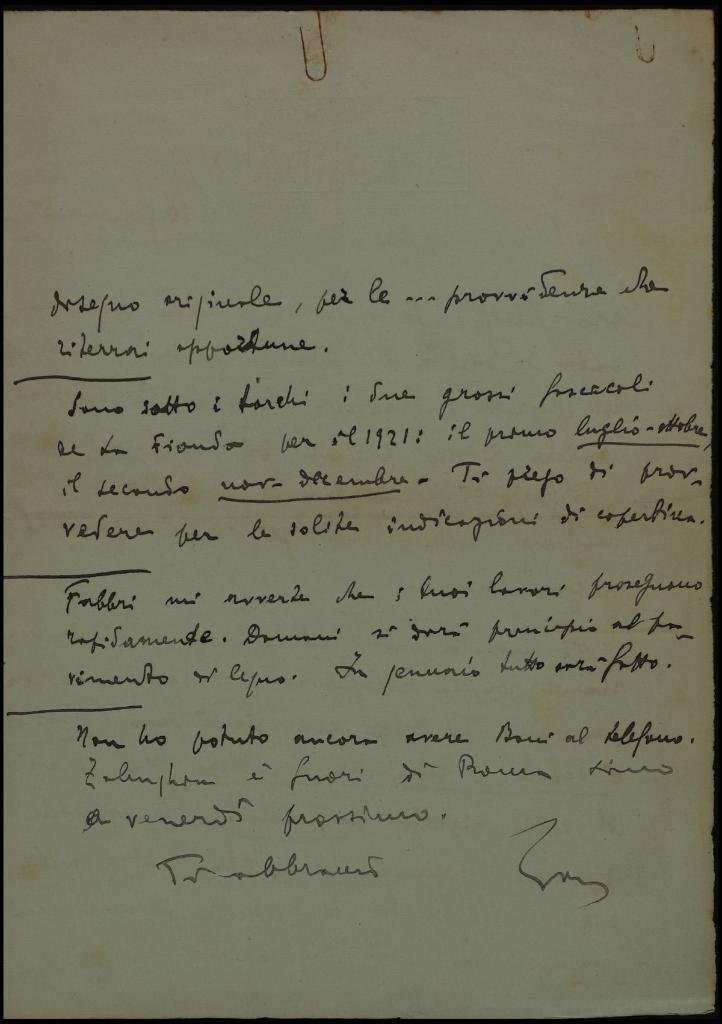 disegno originale, per le ... provvidenze che
riterrai opportune.
Sono sotto i torchi i due grossi fascicoli
de La Fionda per il 1921: il primo luglio-ottobre,
il secondo nov-decembre. Ti prego di prov-
vedere per le solite indicazioni di copertina.
Fabbri mi avverte che i tuoi lavori proseguono
rapidamente. Domani si darà principio al pa-
vimento di legno. In gennaio tutto sarà fatto.
Non ho potuto ancora avere Boni al telefono.
è fuori di Roma sino
a venerdì prossimo.
Ti abbraccio